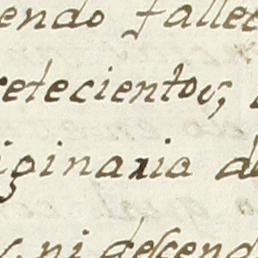 endo fallec
retecientos,
iginaria de
, ni descend